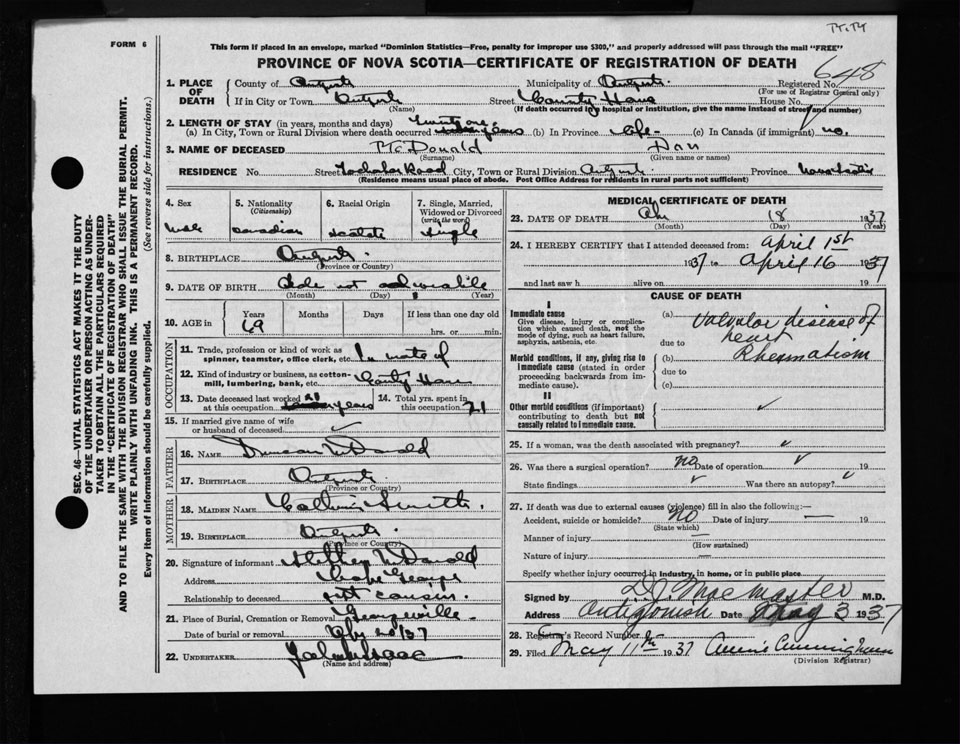 FORM 6
This form if placed in an envelope, marked "Dominion Statistics—Free, penalty for improper use $300," and properly addressed will pass through the mail "FREE"
PROVINCE OF NOVA SCOTIA—CERTIFICATE OF REGISTRATION OF DEATH
648
1. PLACE OF DEATH
County of
Municipality of
Registered No.
(For use of Registrar General only)
If in City or Town
(Name)
Street County Home House No.
(If death occurred in hospital or institution, give the name instead of street and number)
2. LENGTH OF STAY (in years, months and days)
(a) In City, Town or Rural Division where death occurred twenty one years (b) In Province life (c) In Canada (if immigrant) no.
3. NAME OF DECEASED McDonald Dan
(Surname) (Given name or names)
RESIDENCE No. Street Road City, Town or Rural Division Province Nova Scotia
(Residence means usual place of abode. Post Office Address for residents in rural parts not sufficient)
4. Sex Male
5. Nationality (Citizenship) Canadian
6. Racial Origin Scotch
7. Single, Married, Widowed or Divorced (write the word) Single
8. BIRTHPLACE
(Province or Country)
9. DATE OF BIRTH not
(Month) (Day) (Year)
10. AGE in Years 69 Months Days If less than one day old hrs. or min.
OCCUPATION
11. Trade, profession or kind of work as spinner, teamster, office clerk, etc. Inmate of
12. Kind of industry or business, as cotton-mill, lumbering, bank, etc. County Home
13. Date deceased last worked at this occupation years
14. Total yrs. spent in this occupation 21
15. If married give name of wife or husband of deceased
FATHER
16. NAME Duncan McDonald
17. BIRTHPLACE
(Province or Country)
MOTHER
18. MAIDEN NAME
19. BIRTHPLACE
(Province or Country)
20. Signature of informant Stephen McDonald
Address Cape George
Relationship to deceased cousin
21. Place of Burial, Cremation or Removal Georgeville
Date of burial or removal
22. UNDERTAKER
(Name and address)
MEDICAL CERTIFICATE OF DEATH
23. DATE OF DEATH 18 1937
(Month) (Day) (Year)
24. I HEREBY CERTIFY that I attended deceased from: April 1st
1937 to April 16 1937
and last saw h alive on 19
CAUSE OF DEATH
I
Immediate cause
Give disease, injury or complication which caused death, not the mode of dying, such as heart failure, asphyxia, asthenia, etc.
(a) Valvular disease of heart
due to
Morbid conditions, if any, giving rise to immediate cause (stated in order proceeding backwards from immediate cause).
(b) Rheumatism
due to
(c)
II
Other morbid conditions (if important) contributing to death but not causally related to immediate cause.
25. If a woman, was the death associated with pregnancy?
26. Was there a surgical operation? no Date of operation 19
State findings Was there an autopsy?
27. If death was due to external causes (violence) fill in also the following:—
Accident, suicide or homicide? NO Date of injury — 19
(State which)
Manner of injury —
(How sustained)
Nature of injury —
Specify whether injury occurred in industry, in home, or in public place
Signed by D.J. MacMaster M.D.
Address Antigonish Date May 3 1937
28. Registrar's Record Number
29. Filed May 11th 1937 Cunningham
(Division Registrar)
SEC. 46—VITAL STATISTICS ACT MAKES IT THE DUTY
OF THE UNDERTAKER OR PERSON ACTING AS UNDER-
TAKER TO OBTAIN ALL THE PARTICULARS REQUIRED
IN THE "CERTIFICATE OF REGISTRATION OF DEATH"
AND TO FILE THE SAME WITH THE DIVISION REGISTRAR WHO SHALL ISSUE THE BURIAL PERMIT.
WRITE PLAINLY WITH UNFADING INK. THIS IS A PERMANENT RECORD.
Every item of information should be carefully supplied. (See reverse side for instructions.)